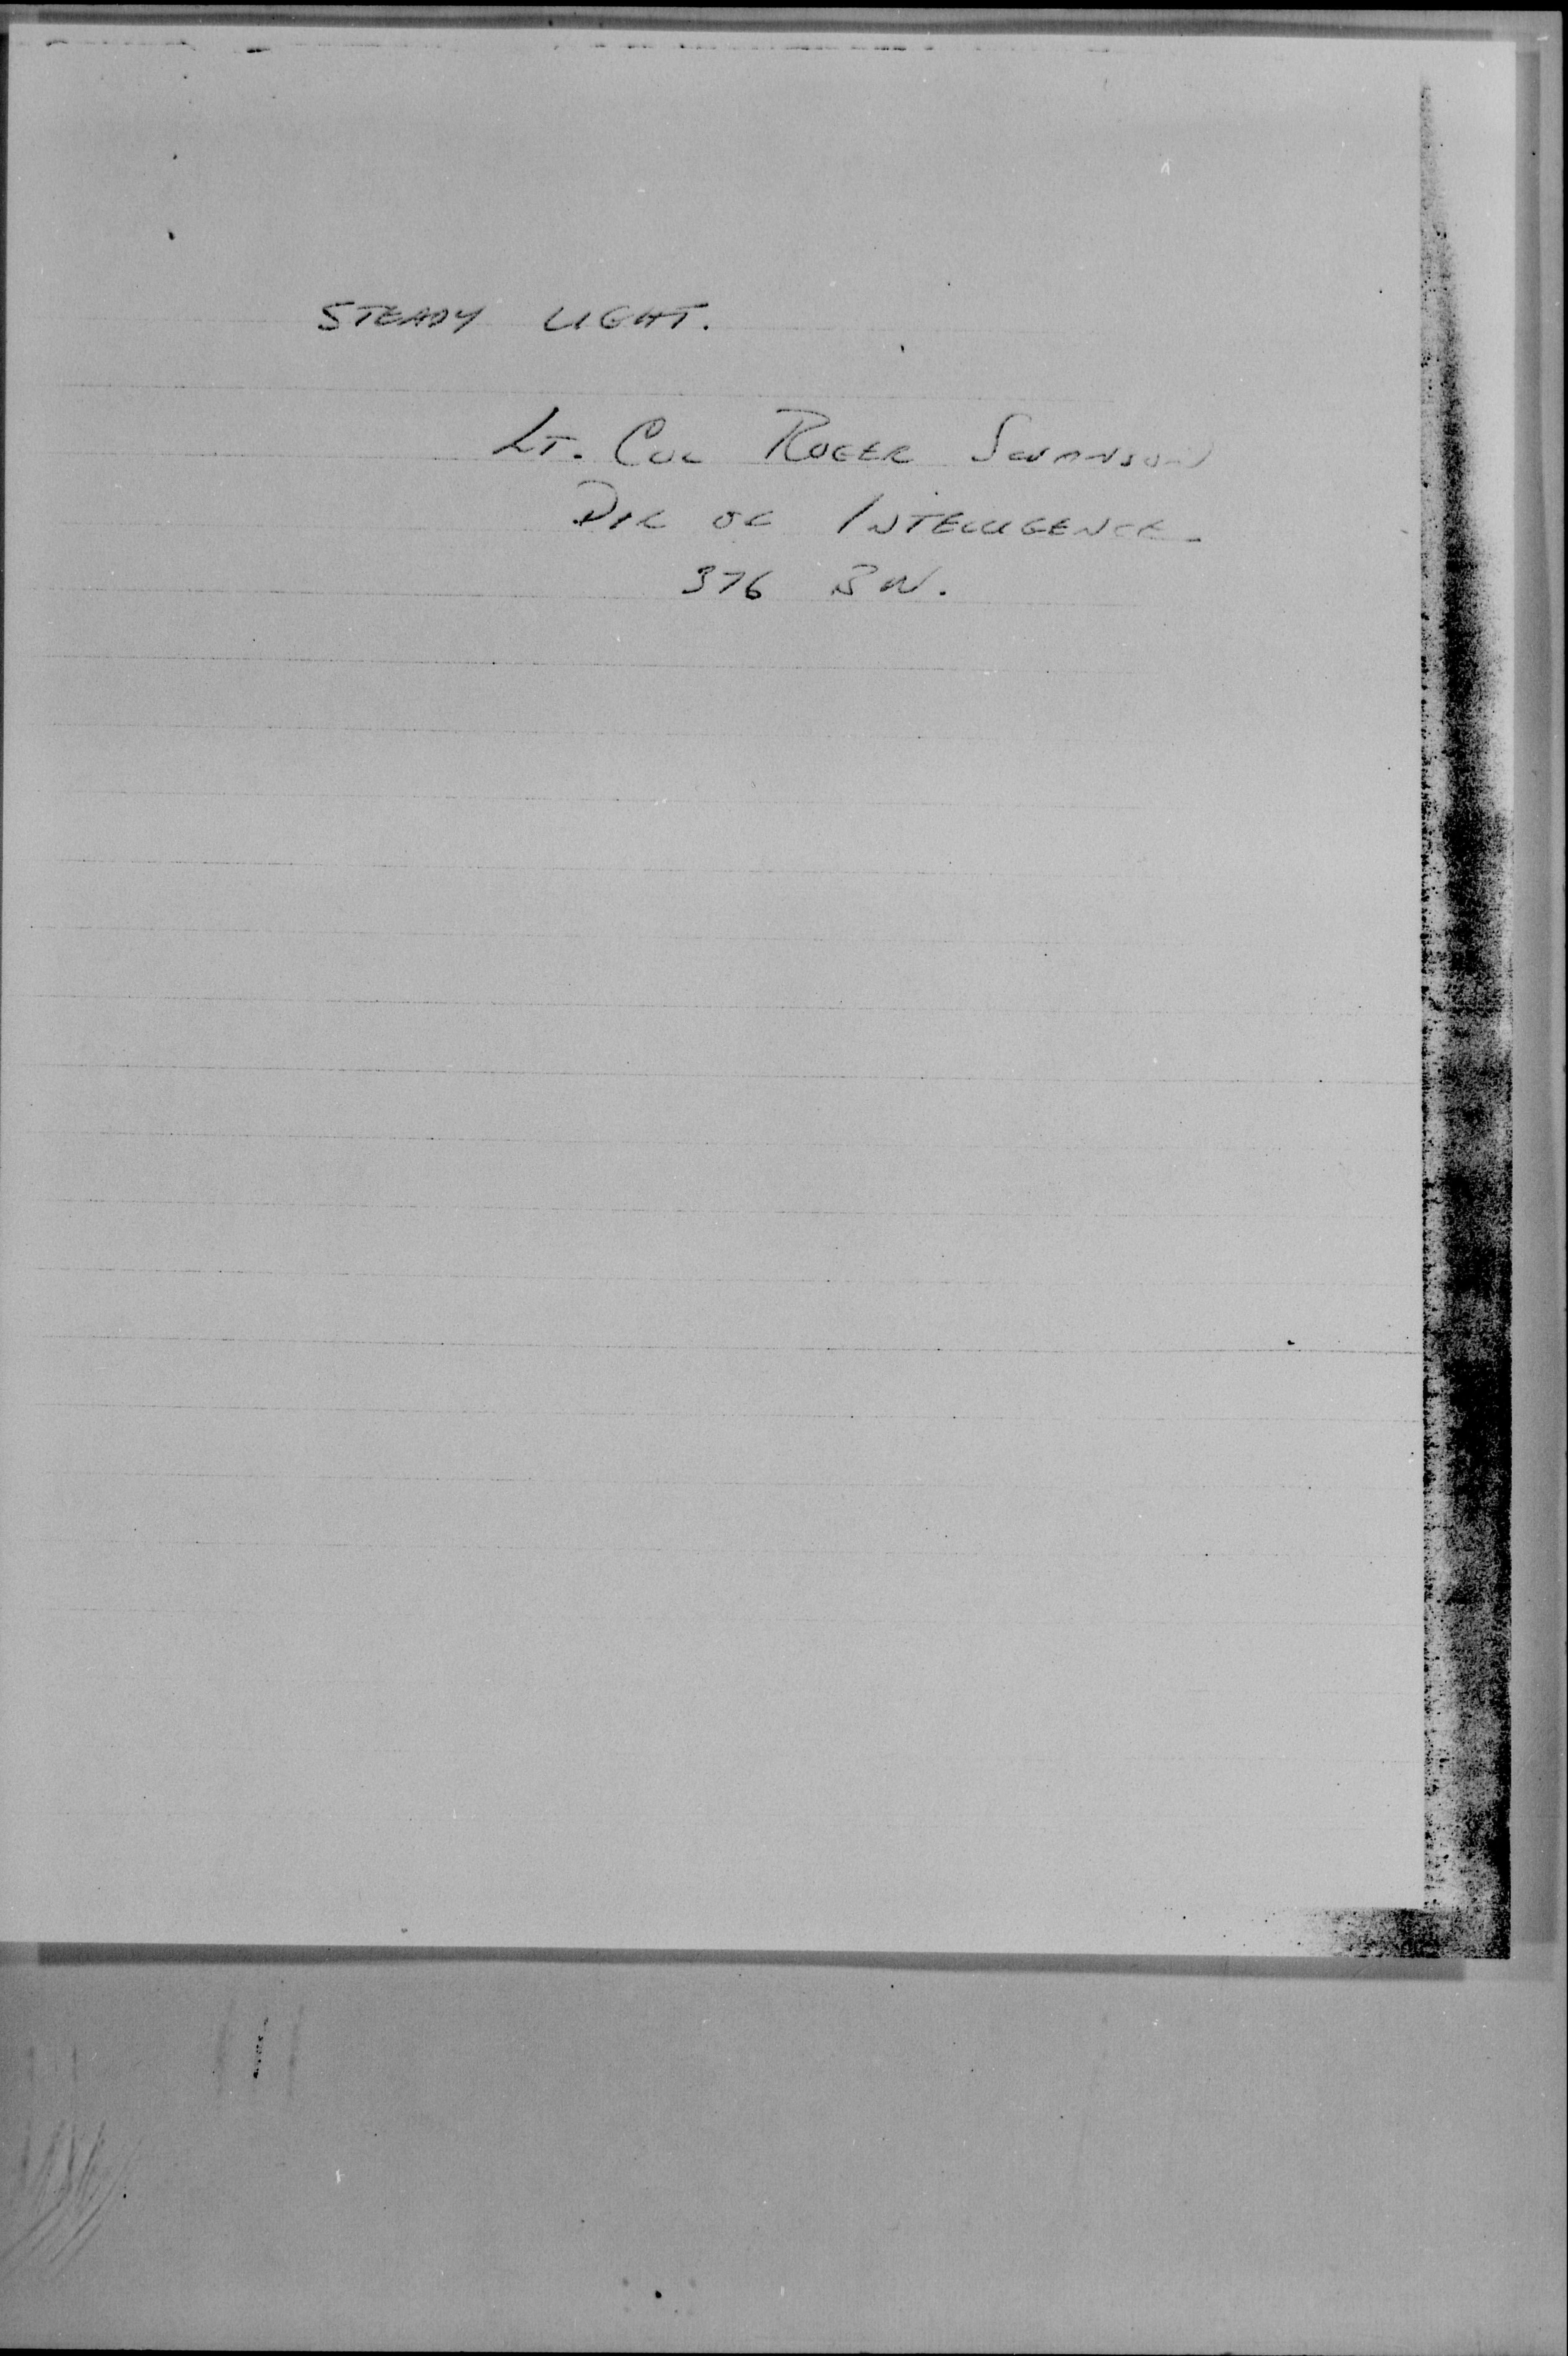 STEADY LIGHT.
LT. COL ROGER SWANSON
DIR OF INTELLIGENCE
376 BW.